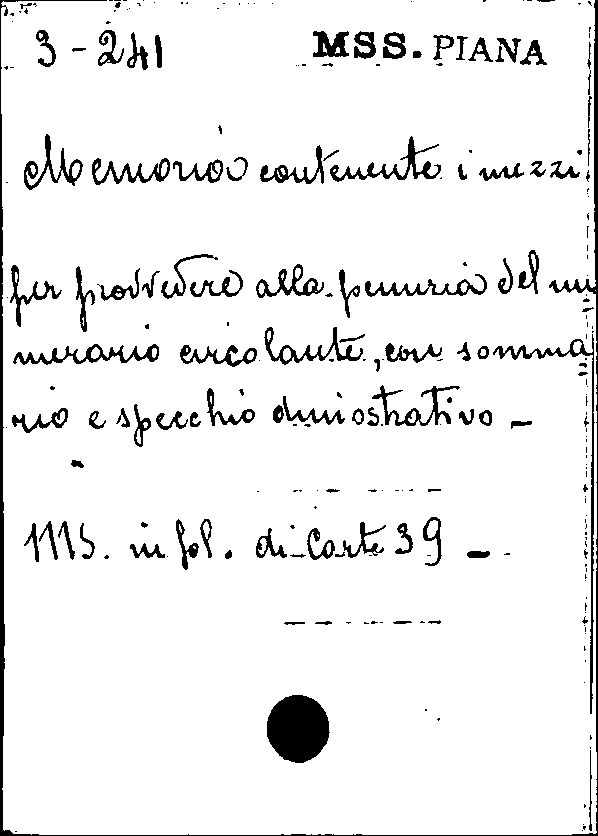 3-241 MSS. PIANA
Memoria contenente i mezzi
per provvedere alla penuria del nu
merario circolante, con somma
rio e specchio dimostrativo -
MS. in fol. di carte 39 -